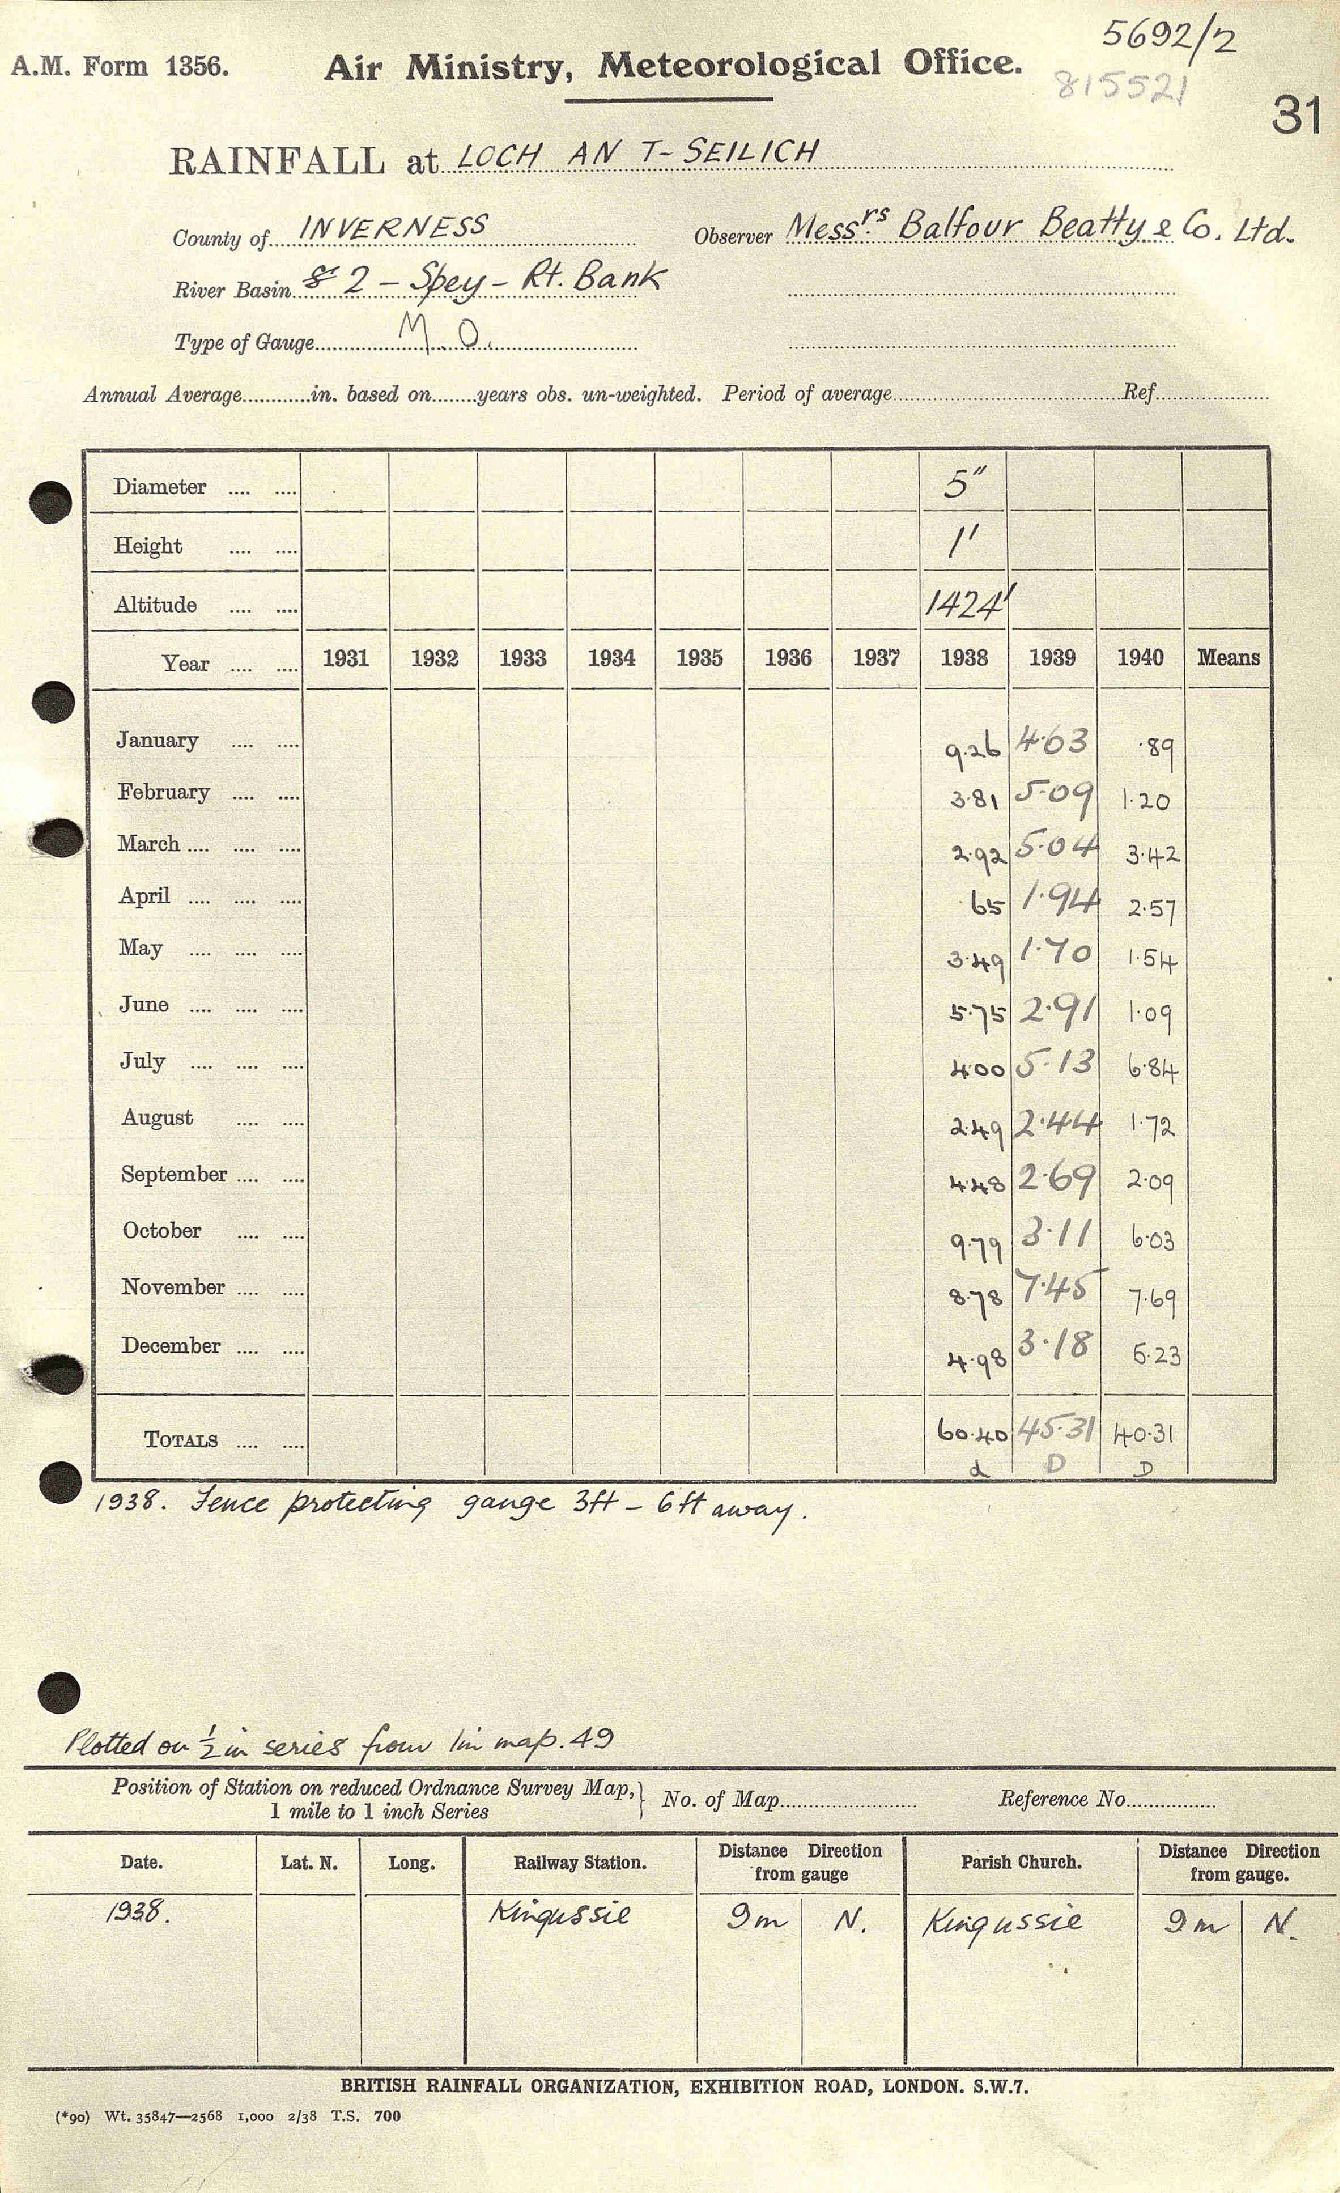 5692/2
A.M. Form 1356. Air Ministry, Meteorological Office.
815521
31
RAINFALL at LOCH AN T-SEILICH
County of INVERNESS Observer Messrs Balfour Beatty & Co. Ltd.
River Basin 8 2 - Spey - Rt. Bank
Type of Gauge M.O.
Annual Average............in. based on........years obs. un-weighted. Period of average............Ref............
Diameter .... .... 5"
Height .... .... 1'
Altitude .... .... 1424'
Year .... .... 1931 1932 1933 1934 1935 1936 1937 1938 1939 1940 Means
January .... .... 9.26 4.63 .89
February .... .... 3.81 5.09 1.20
March .... .... .... 2.92 5.04 3.42
April .... .... .... .65 1.94 2.57
May .... .... .... 3.49 1.70 1.54
June .... .... .... 5.75 2.91 1.09
July .... .... .... 4.00 5.13 6.84
August .... .... 2.49 2.44 1.72
September .... .... 4.48 2.69 2.09
October .... .... 9.79 3.11 6.03
November .... .... 8.78 7.45 7.69
December .... .... 4.98 3.18 5.23
TOTALS .... .... 60.40 45.31 40.31
d D D
1938. Fence protecting gauge 3ft - 6ft away.
Plotted on ½in series from 1in map. 49
Position of Station on reduced Ordnance Survey Map, } No. of Map............ Reference No............
1 mile to 1 inch Series
Date. Lat. N. Long. Railway Station. Distance Direction from gauge Parish Church. Distance Direction from gauge.
1938. Kingussie 9m N. Kingussie 9m N.
BRITISH RAINFALL ORGANIZATION, EXHIBITION ROAD, LONDON. S.W.7.
(*90) Wt. 35847—2568 1,000 2/38 T.S. 700